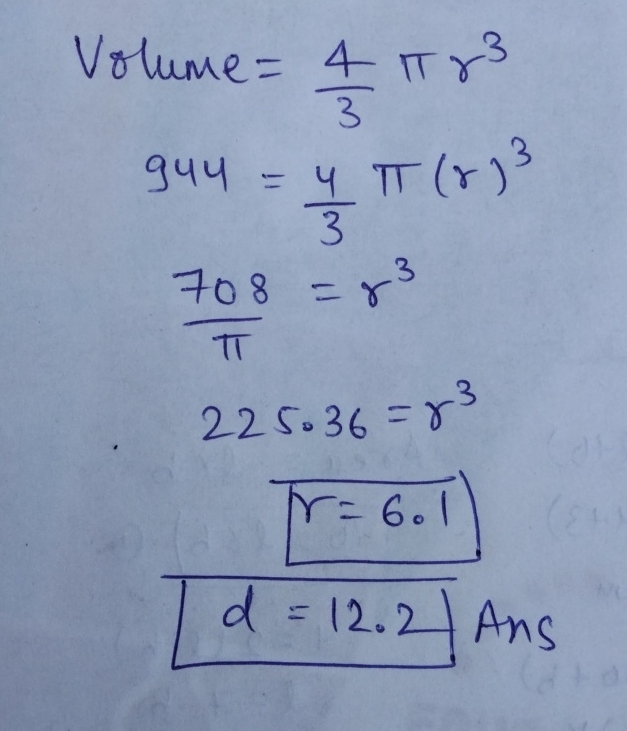 Volume = 4/3 π r³
944 = 4/3 π (r)³
708/π = r³
225.36 = r³
r = 6.1
d = 12.2 Ans